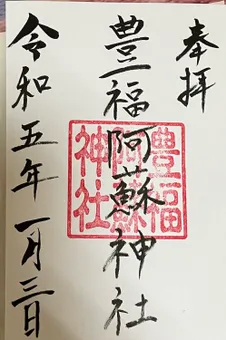 奉拝
豊福阿蘇神社
豊福
阿蘇
神社
令和五年一月三日